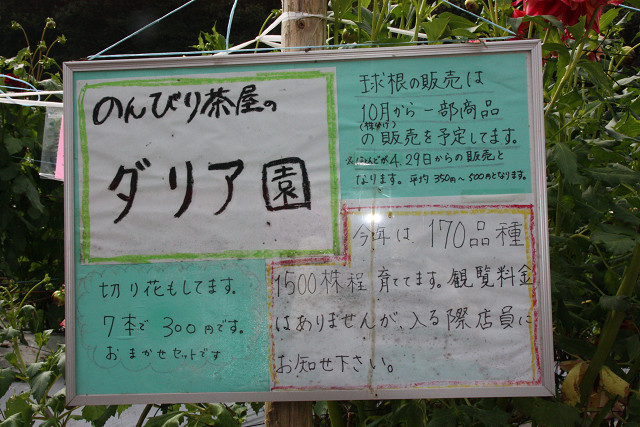 のんびり茶屋の
ダリア園
球根の販売は
10月から一部商品
(株分け)
の販売を予定してます。
※ほとんどが4.29日からの販売と
なります。平均350円~500円となります。
今年は170品種
1500株程育ててます。観覧料金
はありませんが、入る際店員に
お知せ下さい。
切り花もしてます。
7本で300円です。
おまかせセットです